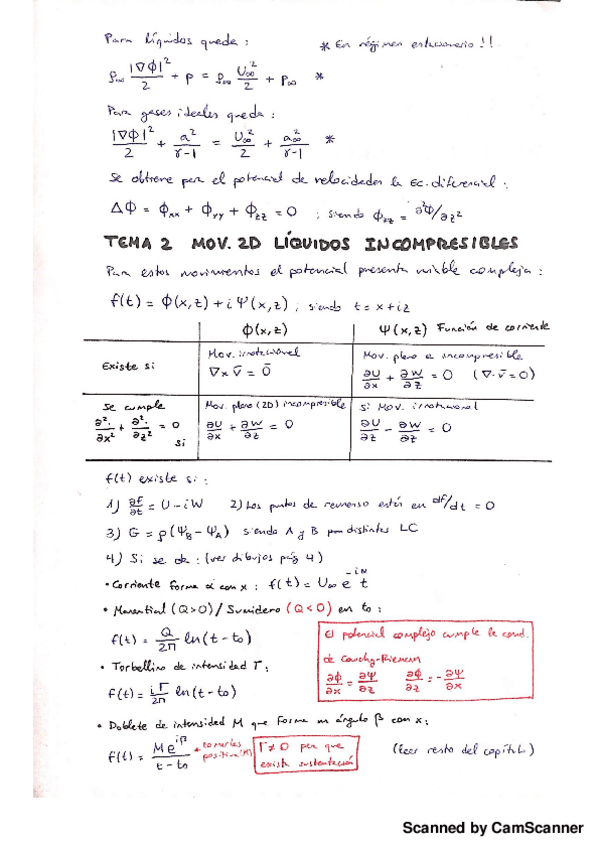 Para líquidos queda: * En régimen estacionario!!
ρ∞ |∇Φ|²/2 + p = ρ∞ U∞²/2 + p∞ *
Para gases ideales queda:
|∇Φ|²/2 + a²/(γ-1) = U∞²/2 + a∞²/(γ-1) *
Se obtiene para el potencial de velocidades la Ec. diferencial:
ΔΦ = Φxx + Φyy + Φzz = 0 ; siendo Φzz = ∂²Φ/∂z²
TEMA 2 MOV. 2D LÍQUIDOS INCOMPRESIBLES
Para estos movimientos el potencial presenta variable compleja:
f(t) = Φ(x,z) + i Ψ(x,z) ; siendo t = x + iz
Φ(x,z) Ψ(x,z) Función de corriente
Existe si
Mov. irrotacional
∇x v̄ = 0̄
Mov. plano e incompresible
∂U/∂x + ∂W/∂z = 0 (∇·v̄ = 0)
Se cumple
∂²·/∂x² + ∂²·/∂z² = 0
si
Mov. plano (2D) incompresible
∂U/∂x + ∂W/∂z = 0
Si Mov. irrotacional
∂U/∂z - ∂W/∂x = 0
f(t) existe si:
1) ∂f/∂t = U - iW 2) Los puntos de remanso están en df/dt = 0
3) G = ρ(ΨB - ΨA) siendo A y B por distintas LC
4) Si se da: (ver dibujos pág 4)
• Corriente forma α con x: f(t) = U∞ e^-iα t
• Manantial (Q>0) / Sumidero (Q<0) en to:
f(t) = Q/2π ln(t - to)
El potencial complejo cumple la cond.
de Cauchy-Riemann
∂Φ/∂x = ∂Ψ/∂z ∂Φ/∂z = -∂Ψ/∂x
• Torbellino de intensidad Γ:
f(t) = iΓ/2π ln(t - to)
• Doblete de intensidad M que forma un ángulo β con x:
f(t) = M e^iβ/(t - to)
Γ ≠ 0 para que
exista sustentación
(leer resto del capítulo)
Scanned by CamScanner